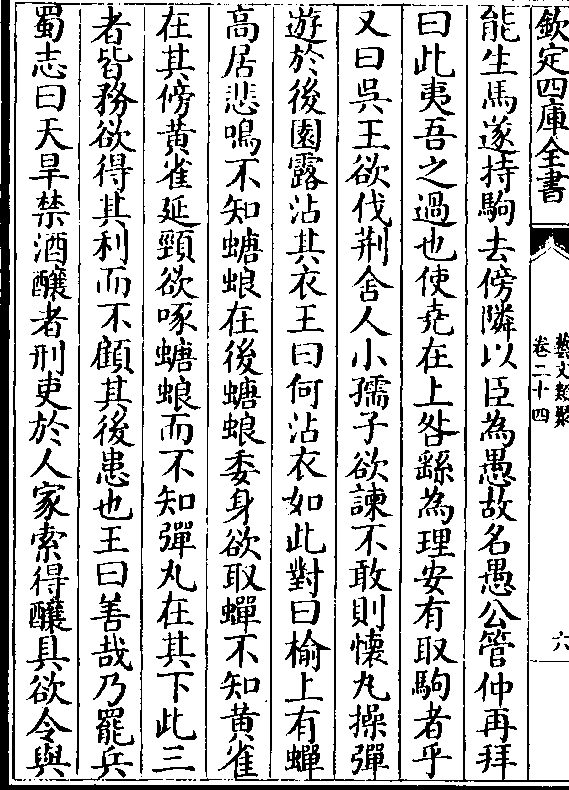 欽定四庫全書
藝文類聚
卷二十四
六
能生馬遂持駒去傍隣以臣為愚故名愚公管仲再拜
曰此夷吾之過也使堯在上咎繇為理安有取駒者乎
又曰吳王欲伐荆舍人小孺子欲諫不敢則懷丸操彈
遊於後園露沾其衣王曰何沾衣如此對曰榆上有蟬
高居悲鳴不知螗蜋在後螗蜋委身欲取蟬不知黃雀
在其傍黃雀延頸欲啄螗蜋而不知彈丸在其下此三
者皆務欲得其利而不顧其後患也王曰善哉乃罷兵
蜀志曰天旱禁酒釀者刑吏於人家索得釀具欲令與